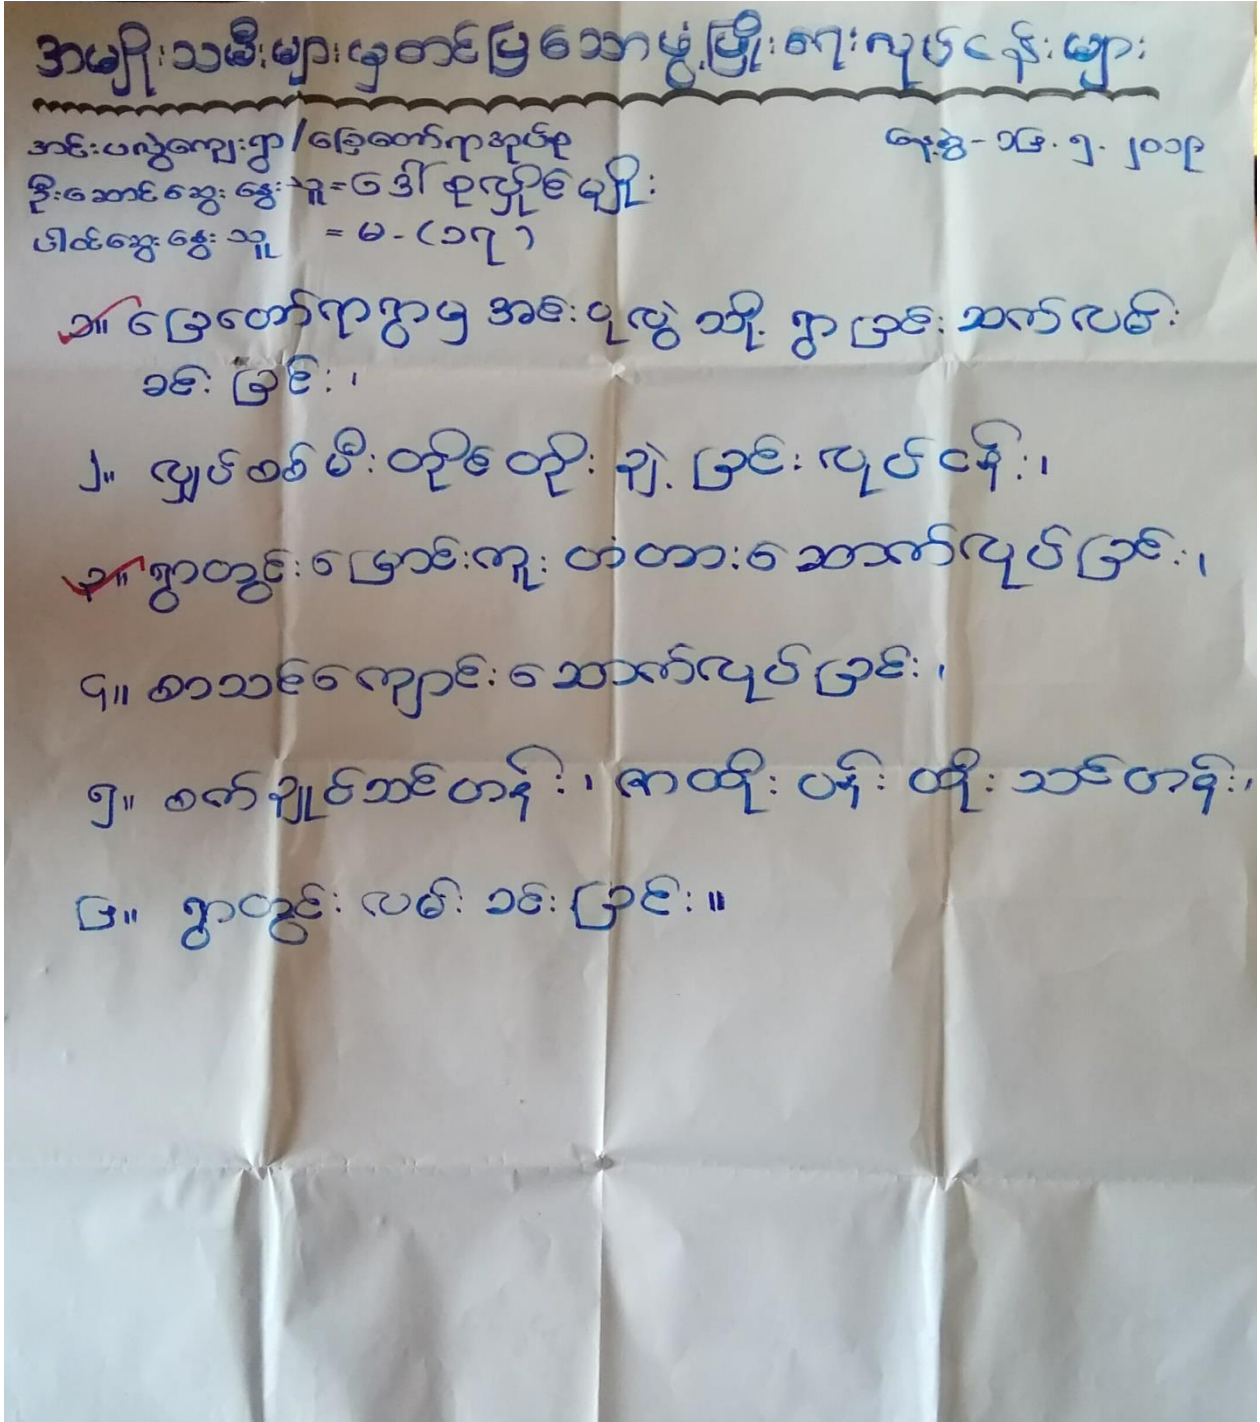 အမျိုးသမီးများမှတင်ပြသောဖွံ့ဖြိုးရေးလုပ်ငန်းများ
အင်းပလွဲကျေးရွာ/ခြေတော်ရာအုပ်စု
နေ့စွဲ- ၁၆.၅.၂၀၁၉
ဦးဆောင်ဆွေးနွေးသူ=ဒေါ်စုလှိုင်မျိုး
ပါဝင်ဆွေးနွေးသူ = မ-(၁၇)
၁။ ခြေတော်ရာရွာမှ အင်းပလွဲသို့ ရွာခြင်းဆက်လမ်း
ခင်းခြင်း၊
၂။ လျှပ်စစ်မီးတိုင်တိုးချဲ့ခြင်းလုပ်ငန်း၊
၃။ ရွာတွင်းမြောင်းကူးတံတားဆောက်လုပ်ခြင်း၊
၄။ စာသင်ကျောင်းဆောက်လုပ်ခြင်း၊
၅။ စက်ချုပ်သင်တန်း၊ ဇာထိုးပန်းထိုးသင်တန်း၊
၆။ ရွာတွင်းလမ်းခင်းခြင်း။